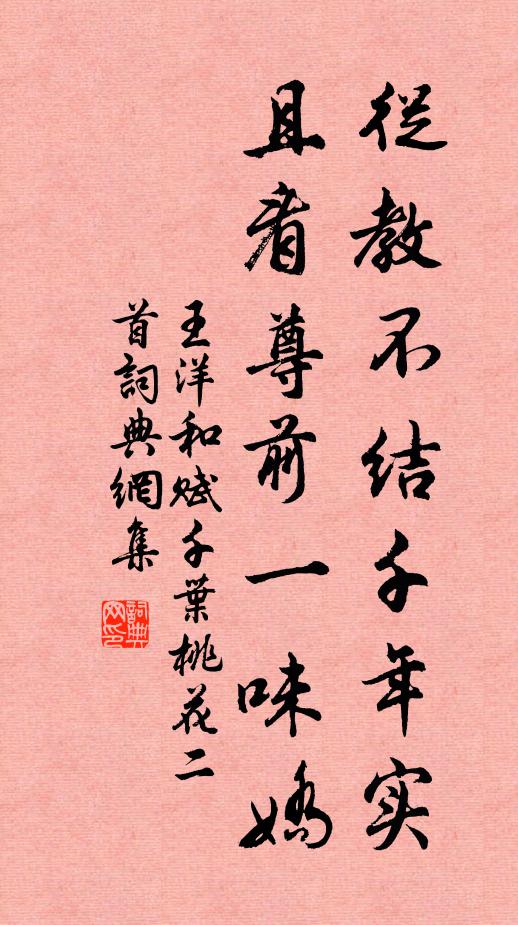 從教不结千年实
且看尊前一味嬌
王洋和赋千葉桃花二
首詞典網集
詞典网印